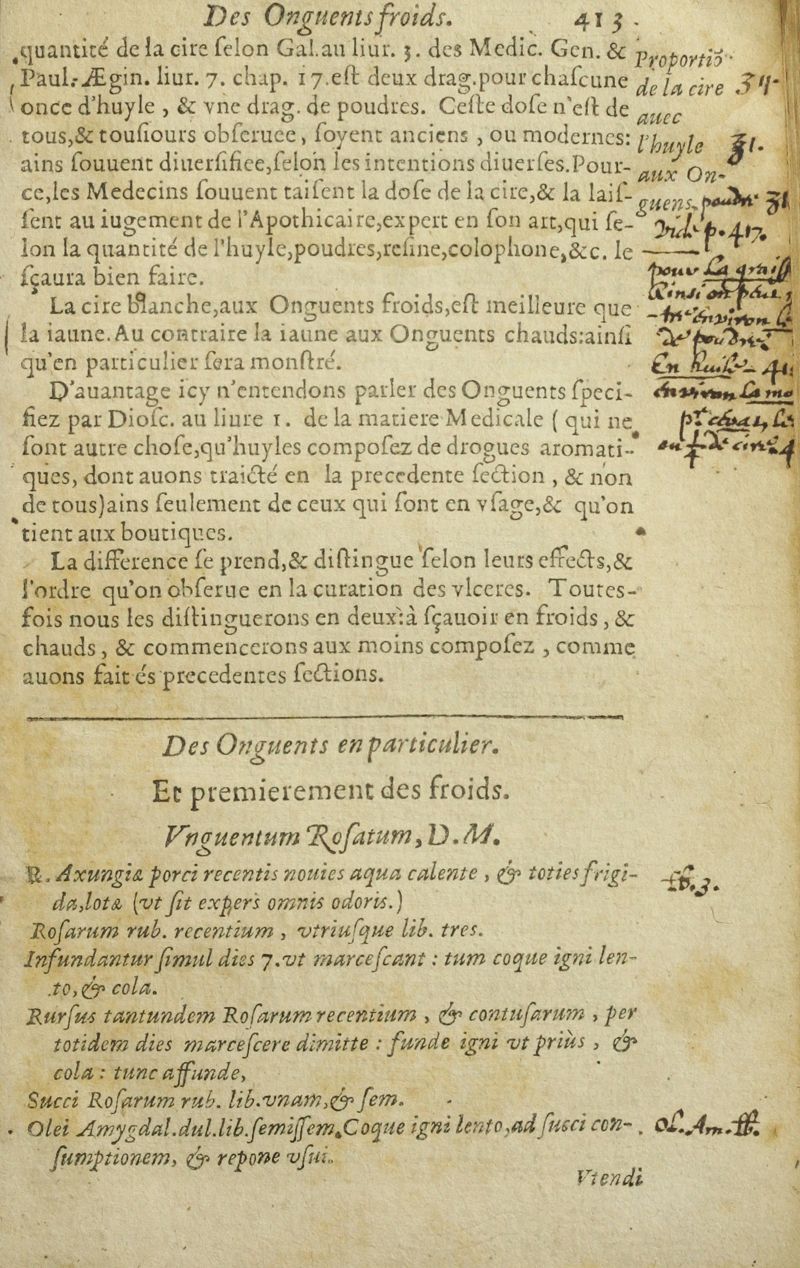 Des Onguents froids. 413.
quantité de la cire ſelon Gal.au liur. 3. des Medic. Gen. &
Paul. Ægin. liur. 7. chap. 17.eſt deux drag.pour chaſcune
once d'huyle , & vne drag. de poudres. Ceſte doſe n'eſt de
tous,& touſiours obſeruee, ſoyent anciens , ou modernes:
ains ſouuent diuerſifiee,ſelon les intentions diuerſes.Pour-
ce,les Medecins ſouuent taiſent la doſe de la cire,& la laiſ-
ſent au iugement de l'Apothicaire,expert en ſon art,qui ſe-
lon la quantité de l'huyle,poudres,reſine,colophone,&c. le
ſçaura bien faire.
Proportiō
de la cire
auec
l'huyle
aux On-
guens.
La cire blanche,aux Onguents froids,eſt meilleure que
la iaune. Au contraire la iaune aux Onguents chauds:ainſi
qu'en particulier ſera monſtré.
D'auantage icy n'entendons parler des Onguents ſpeci-
fiez par Dioſc. au liure 1. de la matiere Medicale ( qui ne
ſont autre choſe,qu'huyles compoſez de drogues aromati-
ques, dont auons traicté en la precedente ſection , & non
de tous)ains ſeulement de ceux qui ſont en vſage,& qu'on
tient aux boutiques.
La difference ſe prend,& diſtingue ſelon leurs effects,&
l'ordre qu'on obſerue en la curation des vlceres. Toutes-
fois nous les diſtinguerons en deux:à ſçauoir en froids , &
chauds , & commencerons aux moins compoſez , comme
auons fait és precedentes ſections.
Des Onguents en particulier.
Et premierement des froids.
Vnguentum Roſatum, D. M.
℞. Axungiæ porci recentis nouies aqua calente , & toties frigi-
da,lotæ (vt ſit expers omnis odoris.)
Roſarum rub. recentium , vtriuſque lib. tres.
Infundantur ſimul dies 7.vt marceſcant : tum coque igni len-
to, & cola.
Rurſus tantundem Roſarum recentium , & contuſarum , per
totidem dies marceſcere dimitte : funde igni vt priùs , &
cola : tunc affunde,
Succi Roſarum rub. lib.vnam,& ſem.
Olei Amygdal.dul.lib.ſemiſſem.Coque igni lento,ad ſucci con-
ſumptionem, & repone vſui.
Ol. Am.
Vtendi